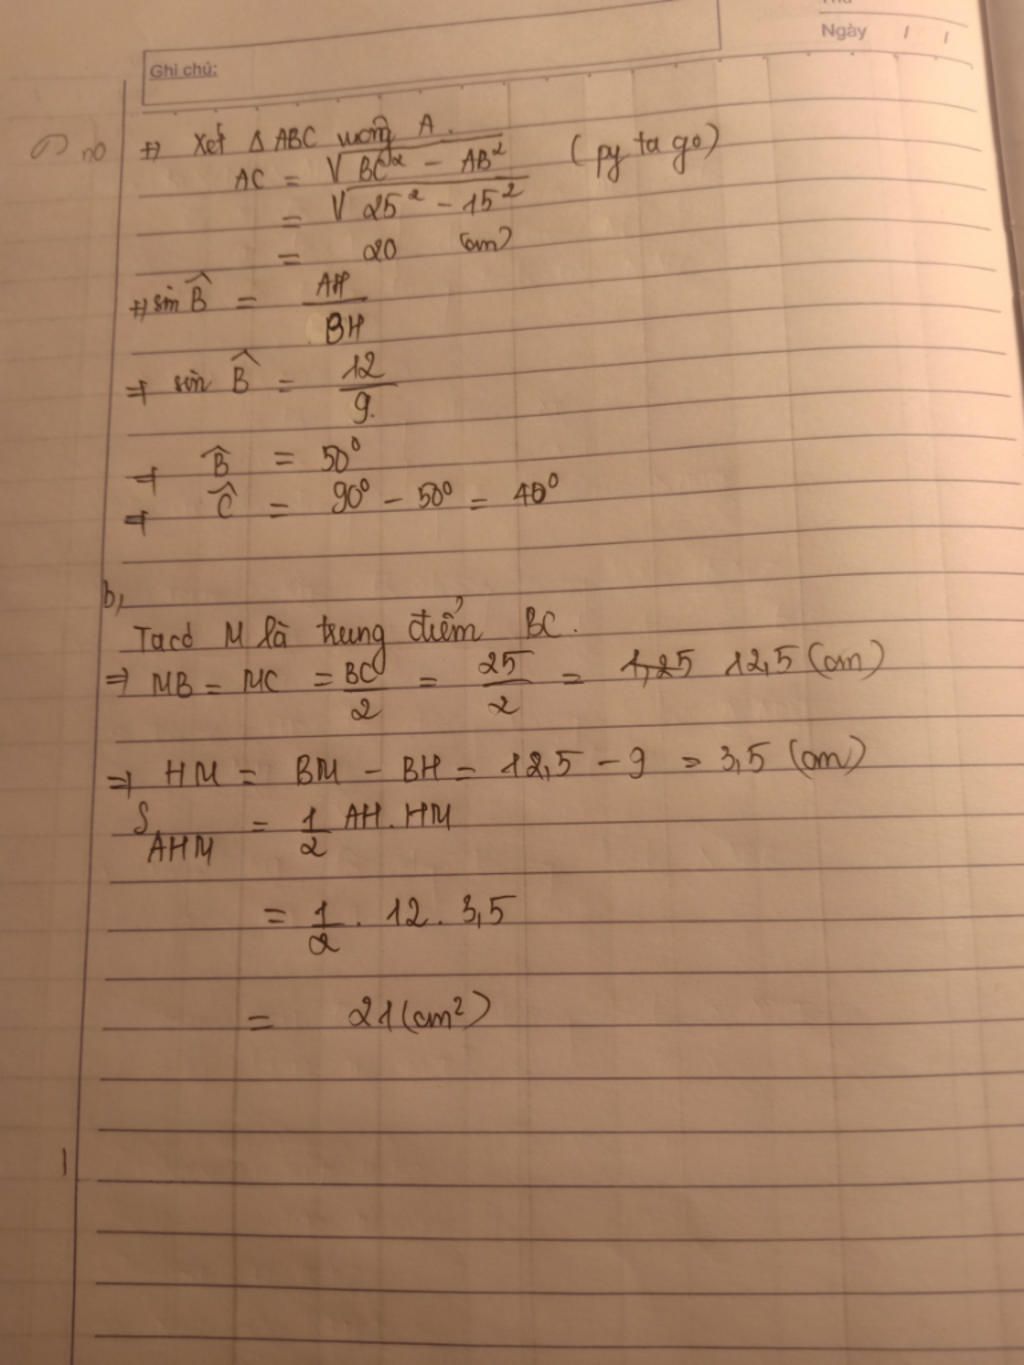 Ngày / /
Ghi chú:
+, Xét Δ ABC vuông A.
AC = √BC² - AB² (py ta go)
= √25² - 15²
= 20 (cm)
+, sin B̂ = AH/BH
⇒ sin B̂ = 12/9.
⇒ B̂ = 50⁰
⇒ Ĉ = 90⁰ - 50⁰ = 40⁰
b,
Ta có M là trung điểm BC.
⇒ MB = MC = BC/2 = 25/2 = 12,5 (cm)
⇒ HM = BM - BH = 12,5 - 9 = 3,5 (cm)
S AHM = 1/2 AH.HM
= 1/2 . 12 . 3,5
= 21 (cm²)